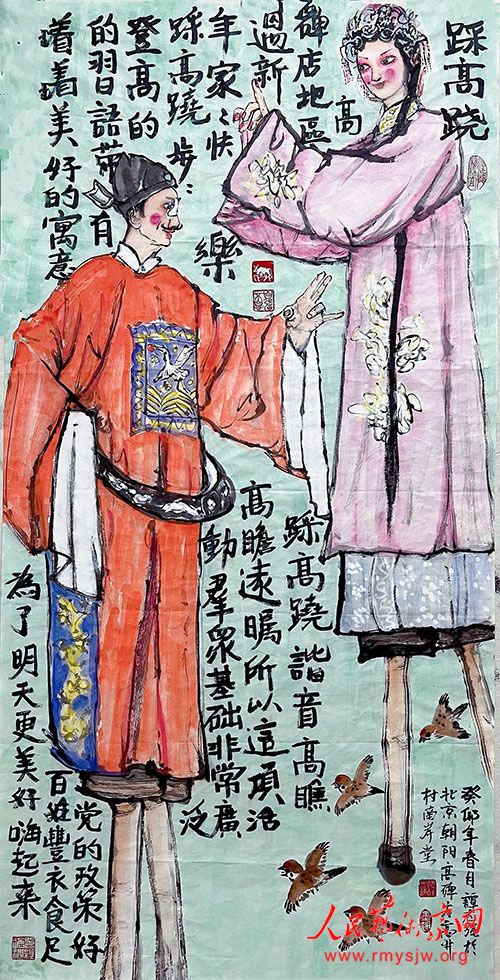 踩高跷
高
碑店地區
過新
年家〻快
樂
踩高蹺步〻
登高的
的習語帶有
着着美好的寓意
踩高蹺諧音高瞧
高瞻遠矚所以這項活
動羣衆基础非常廣
泛
党的政策好
百姓豐衣食足
為了明天更美好嗨起来
癸卯年春月譚於
北京朝阳高碑店高井
村南岸堂
人民艺术家
www.rmysjw.org